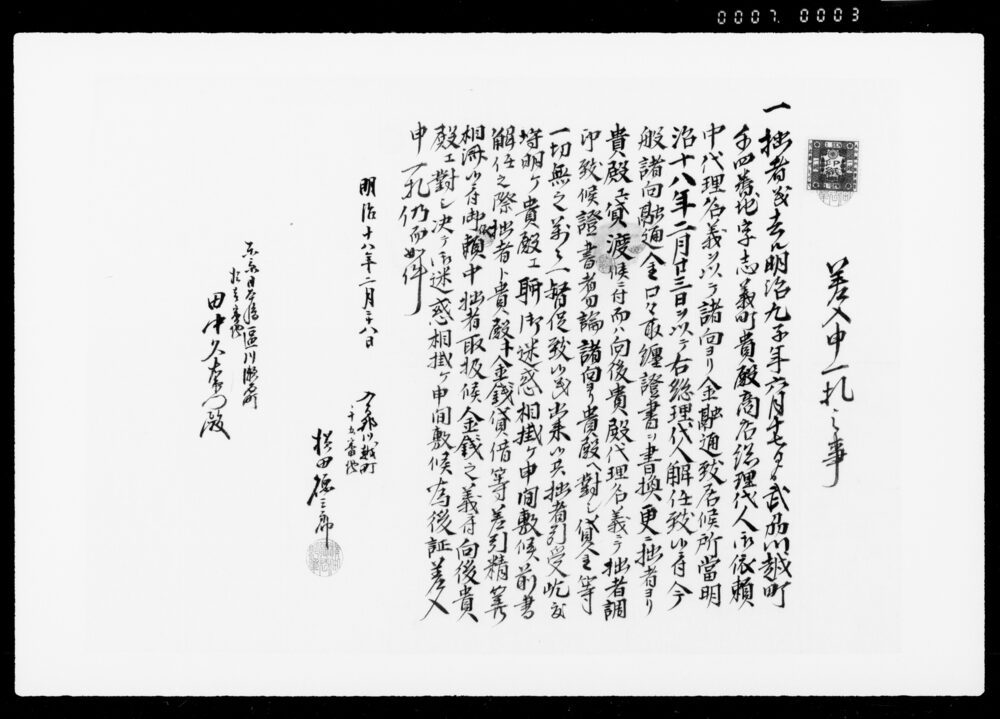 0007 0003
差入申一札之事
一拙者義去ル明治九子年六月十七日ゟ武州川越町
壬四番地字志義町貴殿商店総理代人御依頼
中代理名義ヲ以テ諸向ヨリ金融通致居候所當明
治十八年二月廿三日ヲ以テ右総理代人解任致候ニ付今
般諸向融通金口々取纏證書ヲ書換更ニ拙者ヨリ
貴殿エ貸渡候ニ付而ハ向後貴殿代理名義ニテ拙者調
印致候證書者勿論諸向ヨリ貴殿ヘ對シ貸金等
一切無之萬々一督促致候者出来候共拙者引受
埒明ケ貴殿エ聊御迷惑相掛ケ申間敷候前書
解任之際拙者ト貴殿ト金銭貸借等差引精算
相済候ニ付御頼中拙者取扱候金銭之義ニ付向後貴
殿エ對シ決テ御迷惑相掛ケ申間敷候為後証差入
申一札仍而如件
明治十八年二月廿八日
川越町
十五番地
横田徳三郎
東京日本橋區川瀬石町
拾壱番地
田中久左衛門殿